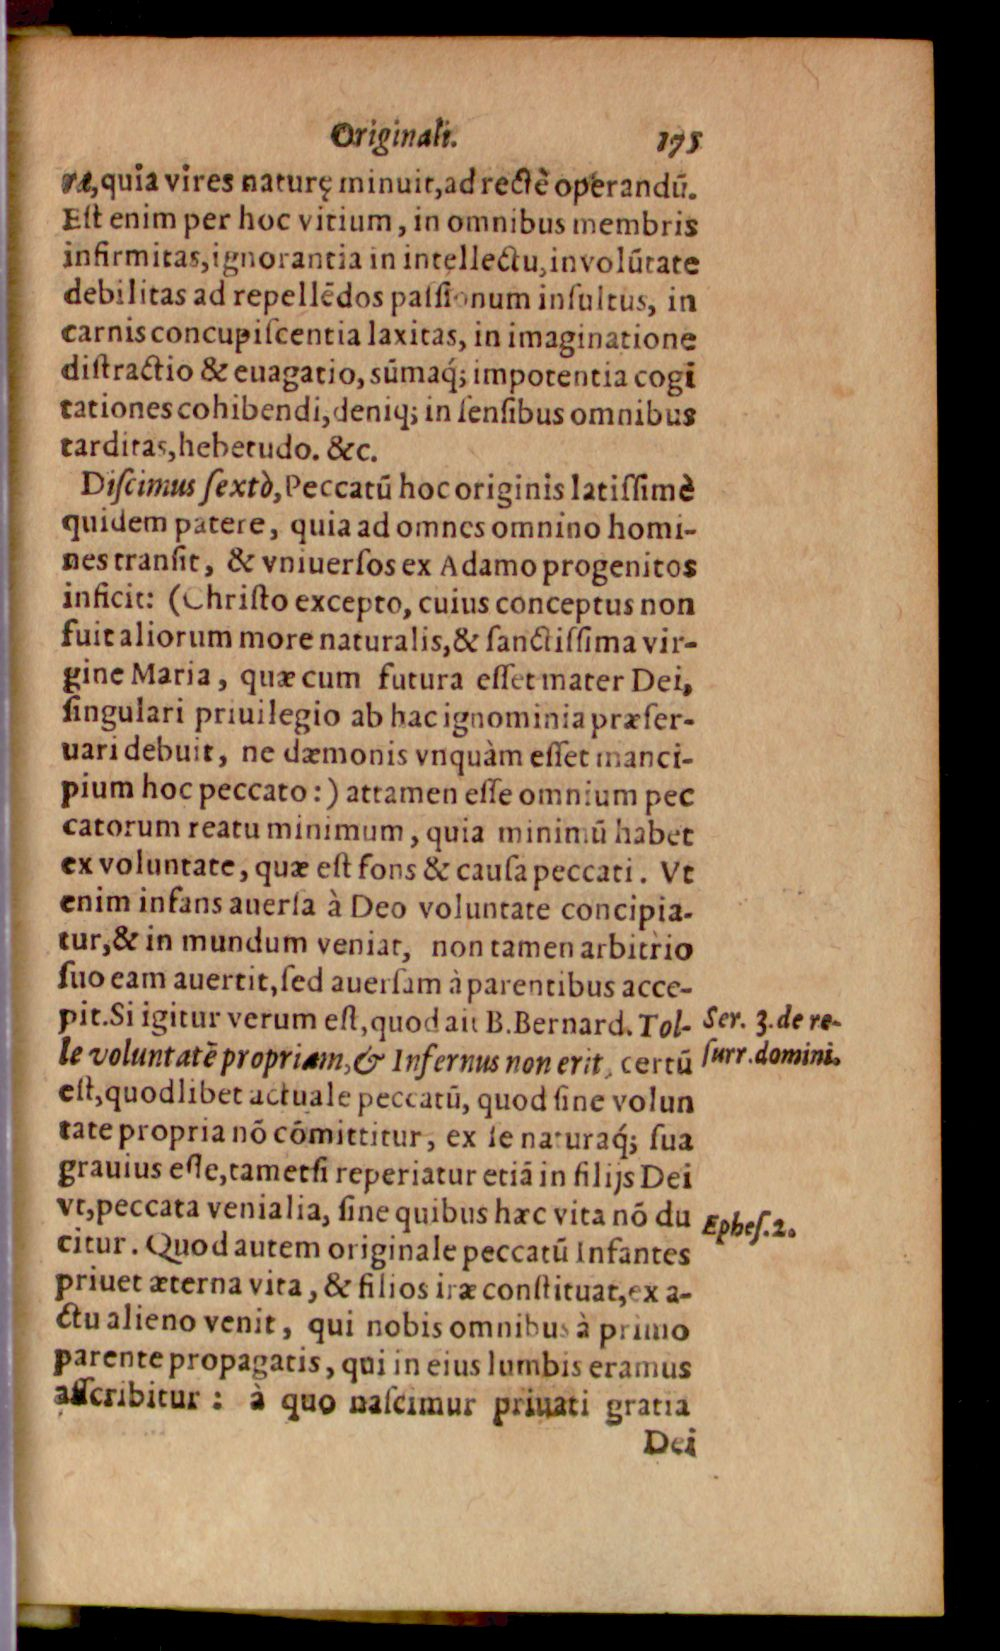 Originali. 175
ræ, quia vires naturę minuit, ad rectè operandū.
Eſt enim per hoc vitium, in omnibus membris
infirmitas, ignorantia in intellectu, in volūtate
debilitas ad repellēdos paſſionum inſultus, in
carnis concupiſcentia laxitas, in imaginatione
diſtractio & euagatio, sūmaq́; impotentia cogi
tationes cohibendi, deniq; in ſenſibus omnibus
tarditas, hebetudo. &c.
Diſcimus ſextò, Peccatū hoc originis latiſſimè
quidem patere, quia ad omnes omnino homi-
nes tranſit, & vniuerſos ex Adamo progenitos
inficit: (Chriſto excepto, cuius conceptus non
fuit aliorum more naturalis, & ſanctiſſima vir-
gine Maria, quæ cum futura eſſet mater Dei,
ſingulari priuilegio ab hac ignominia præſer-
uari debuit, ne dæmonis vnquàm eſſet manci-
pium hoc peccato:) attamen eſſe omnium pec
catorum reatu minimum, quia minimū habet
ex voluntate, quæ eſt fons & cauſa peccati. Vt
enim infans auerſa à Deo voluntate concipia-
tur, & in mundum veniat, non tamen arbitrio
ſuo eam auertit, ſed auerſam à parentibus acce-
pit. Si igitur verum eſt, quod ait B. Bernard. Tol-
le voluntatē propriam, & Infernus non erit, certū
eſt, quodlibet actuale peccatū, quod ſine volun
tate propria nō cōmittitur, ex ſe naturaq́; ſua
grauius eſſe, tametſi reperiatur etiā in filijs Dei
vt, peccata venialia, ſine quibus hæc vita nō du
citur. Quod autem originale peccatū Infantes
priuet æterna vita, & filios iræ conſtituat, ex a-
ctu alieno venit, qui nobis omnibus à primo
parente propagatis, qui in eius lumbis eramus
aſſcribitur: à quo naſcimur priuati gratia
Dei
Ser. 3. de re-
ſurr. domini.
Epheſ. 2.